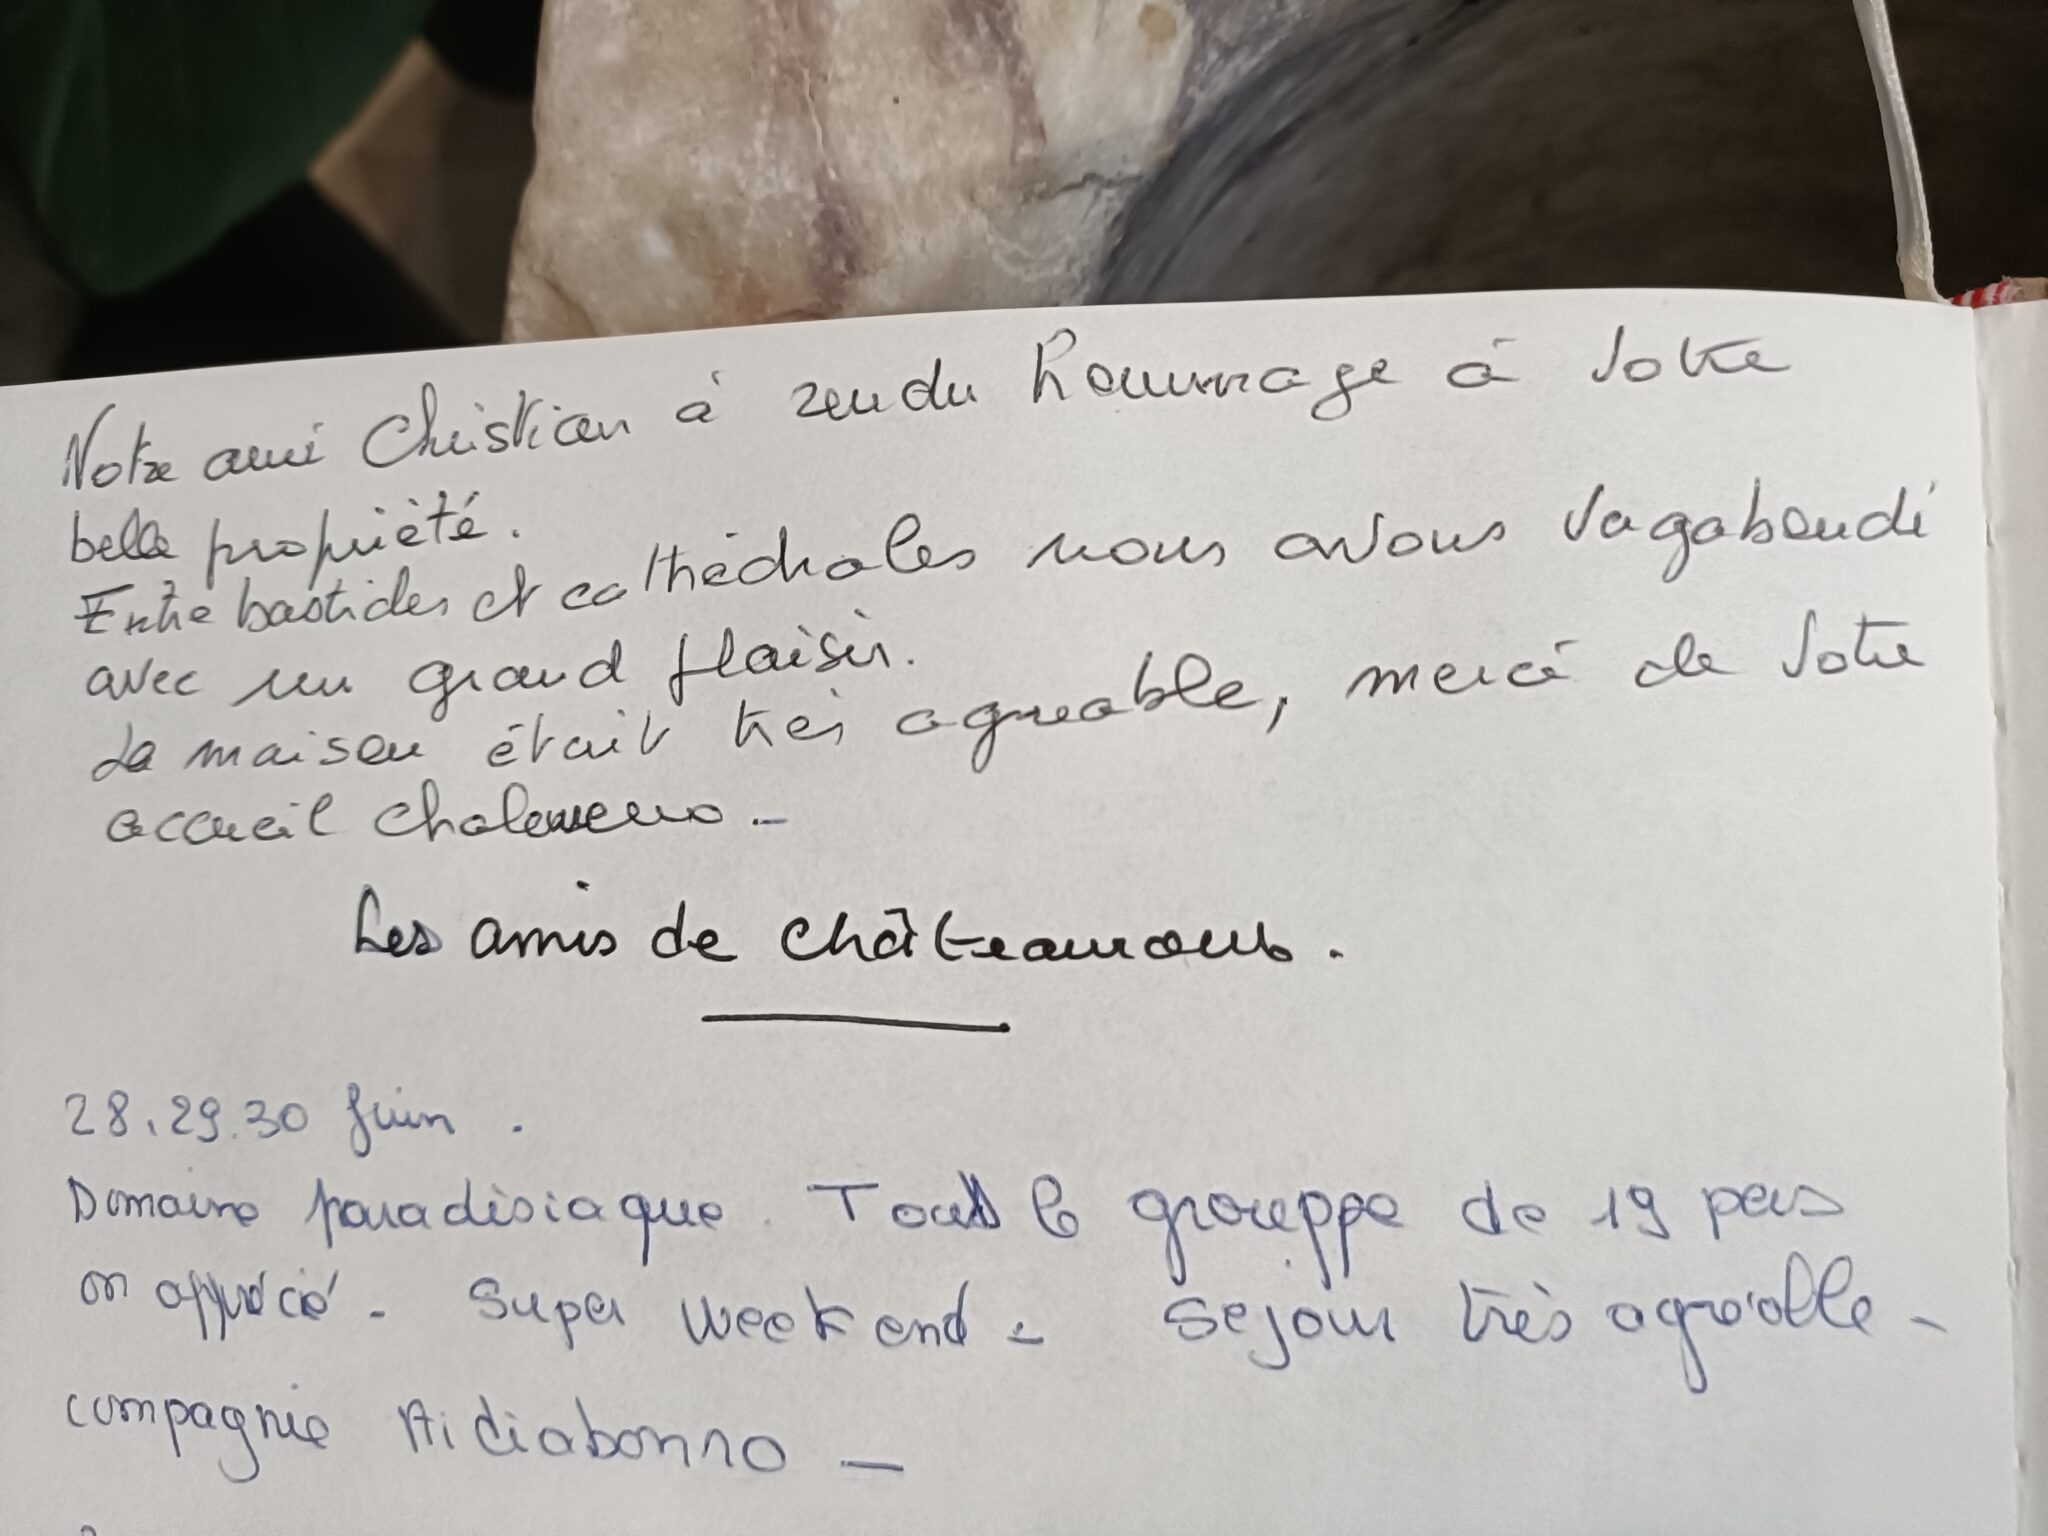 Notre ami Christian à rendu hommage à votre
belle propriété.
Entre bastides et cathédrales nous avons vagabondi
avec un grand plaisir.
La maison était très agreable, merci de votre
accueil chaleureux -
Les amis de Châteaumoub.
28.29.30 Juin .
Domaine paradisiaque. Tout le grouppe de 19 pers
on apprécié - super week end - sejour très agréable -
compagnie Aidiabonno -